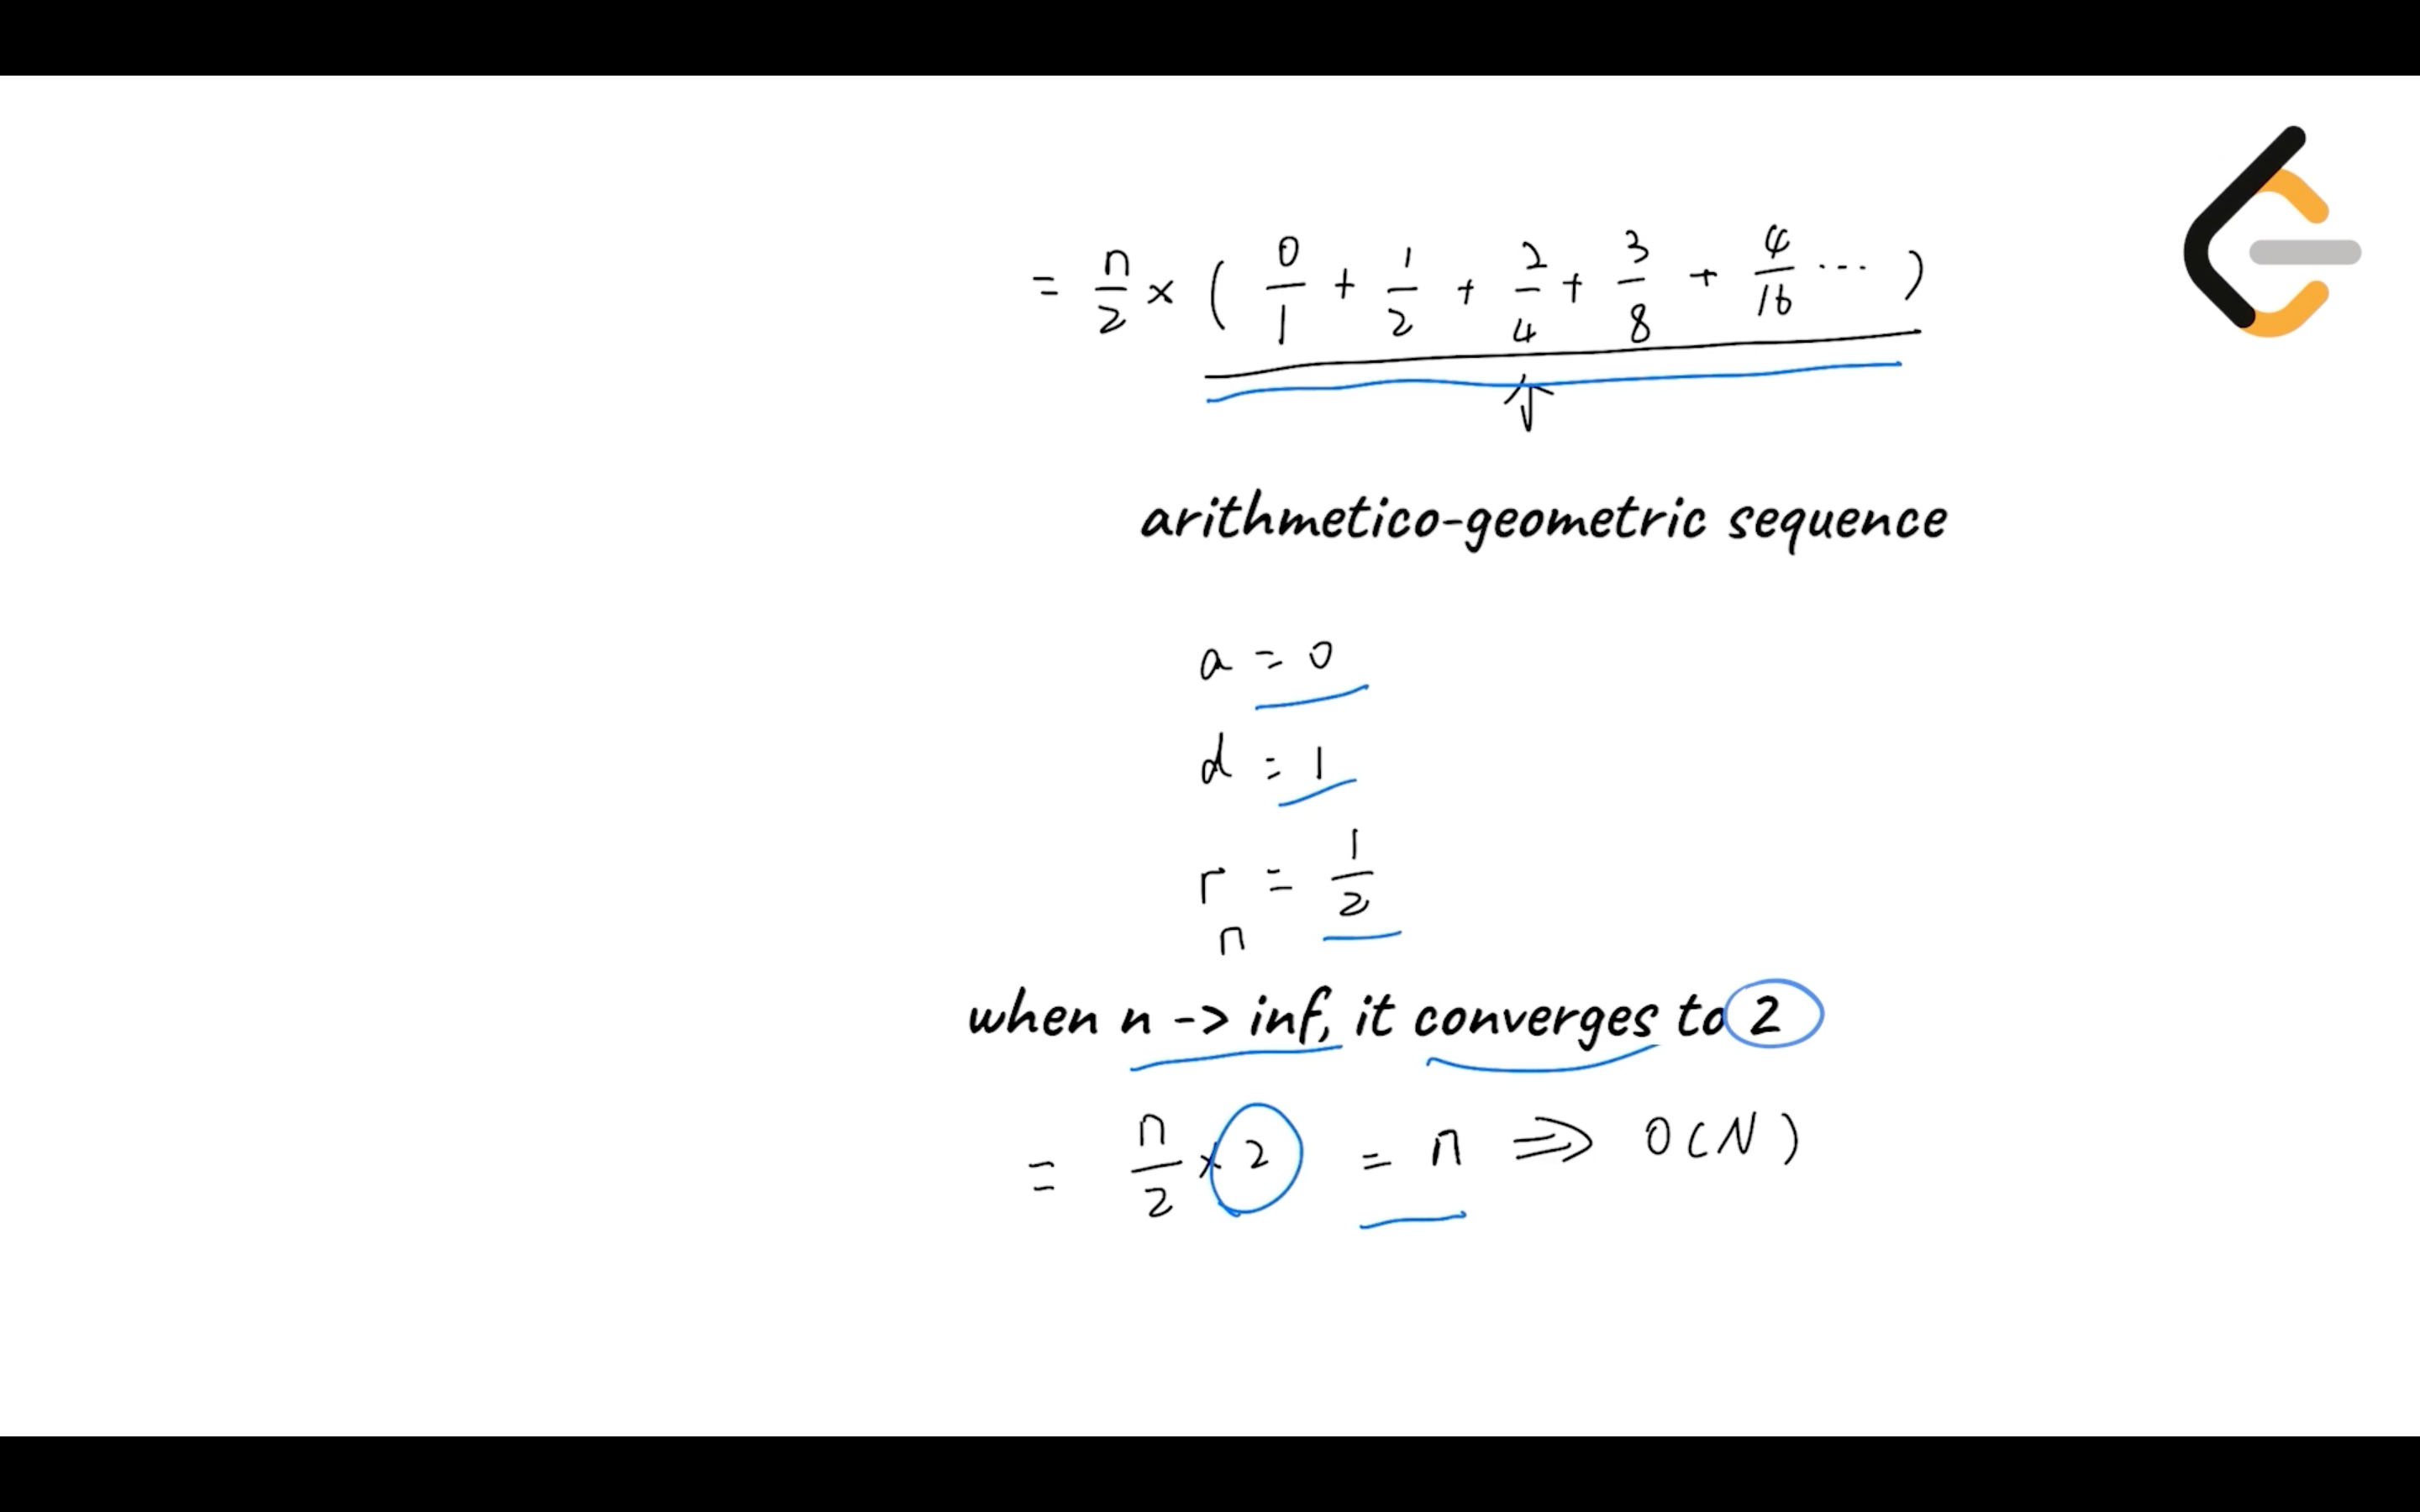 = n/2 × ( 0/1 + 1/2 + 2/4 + 3/8 + 4/16 ... )
arithmetico-geometric sequence
a = 0
d = 1
r = 1/2
n
when n -> inf, it converges to 2
= n/2 × 2 = n ⇒ O(N)